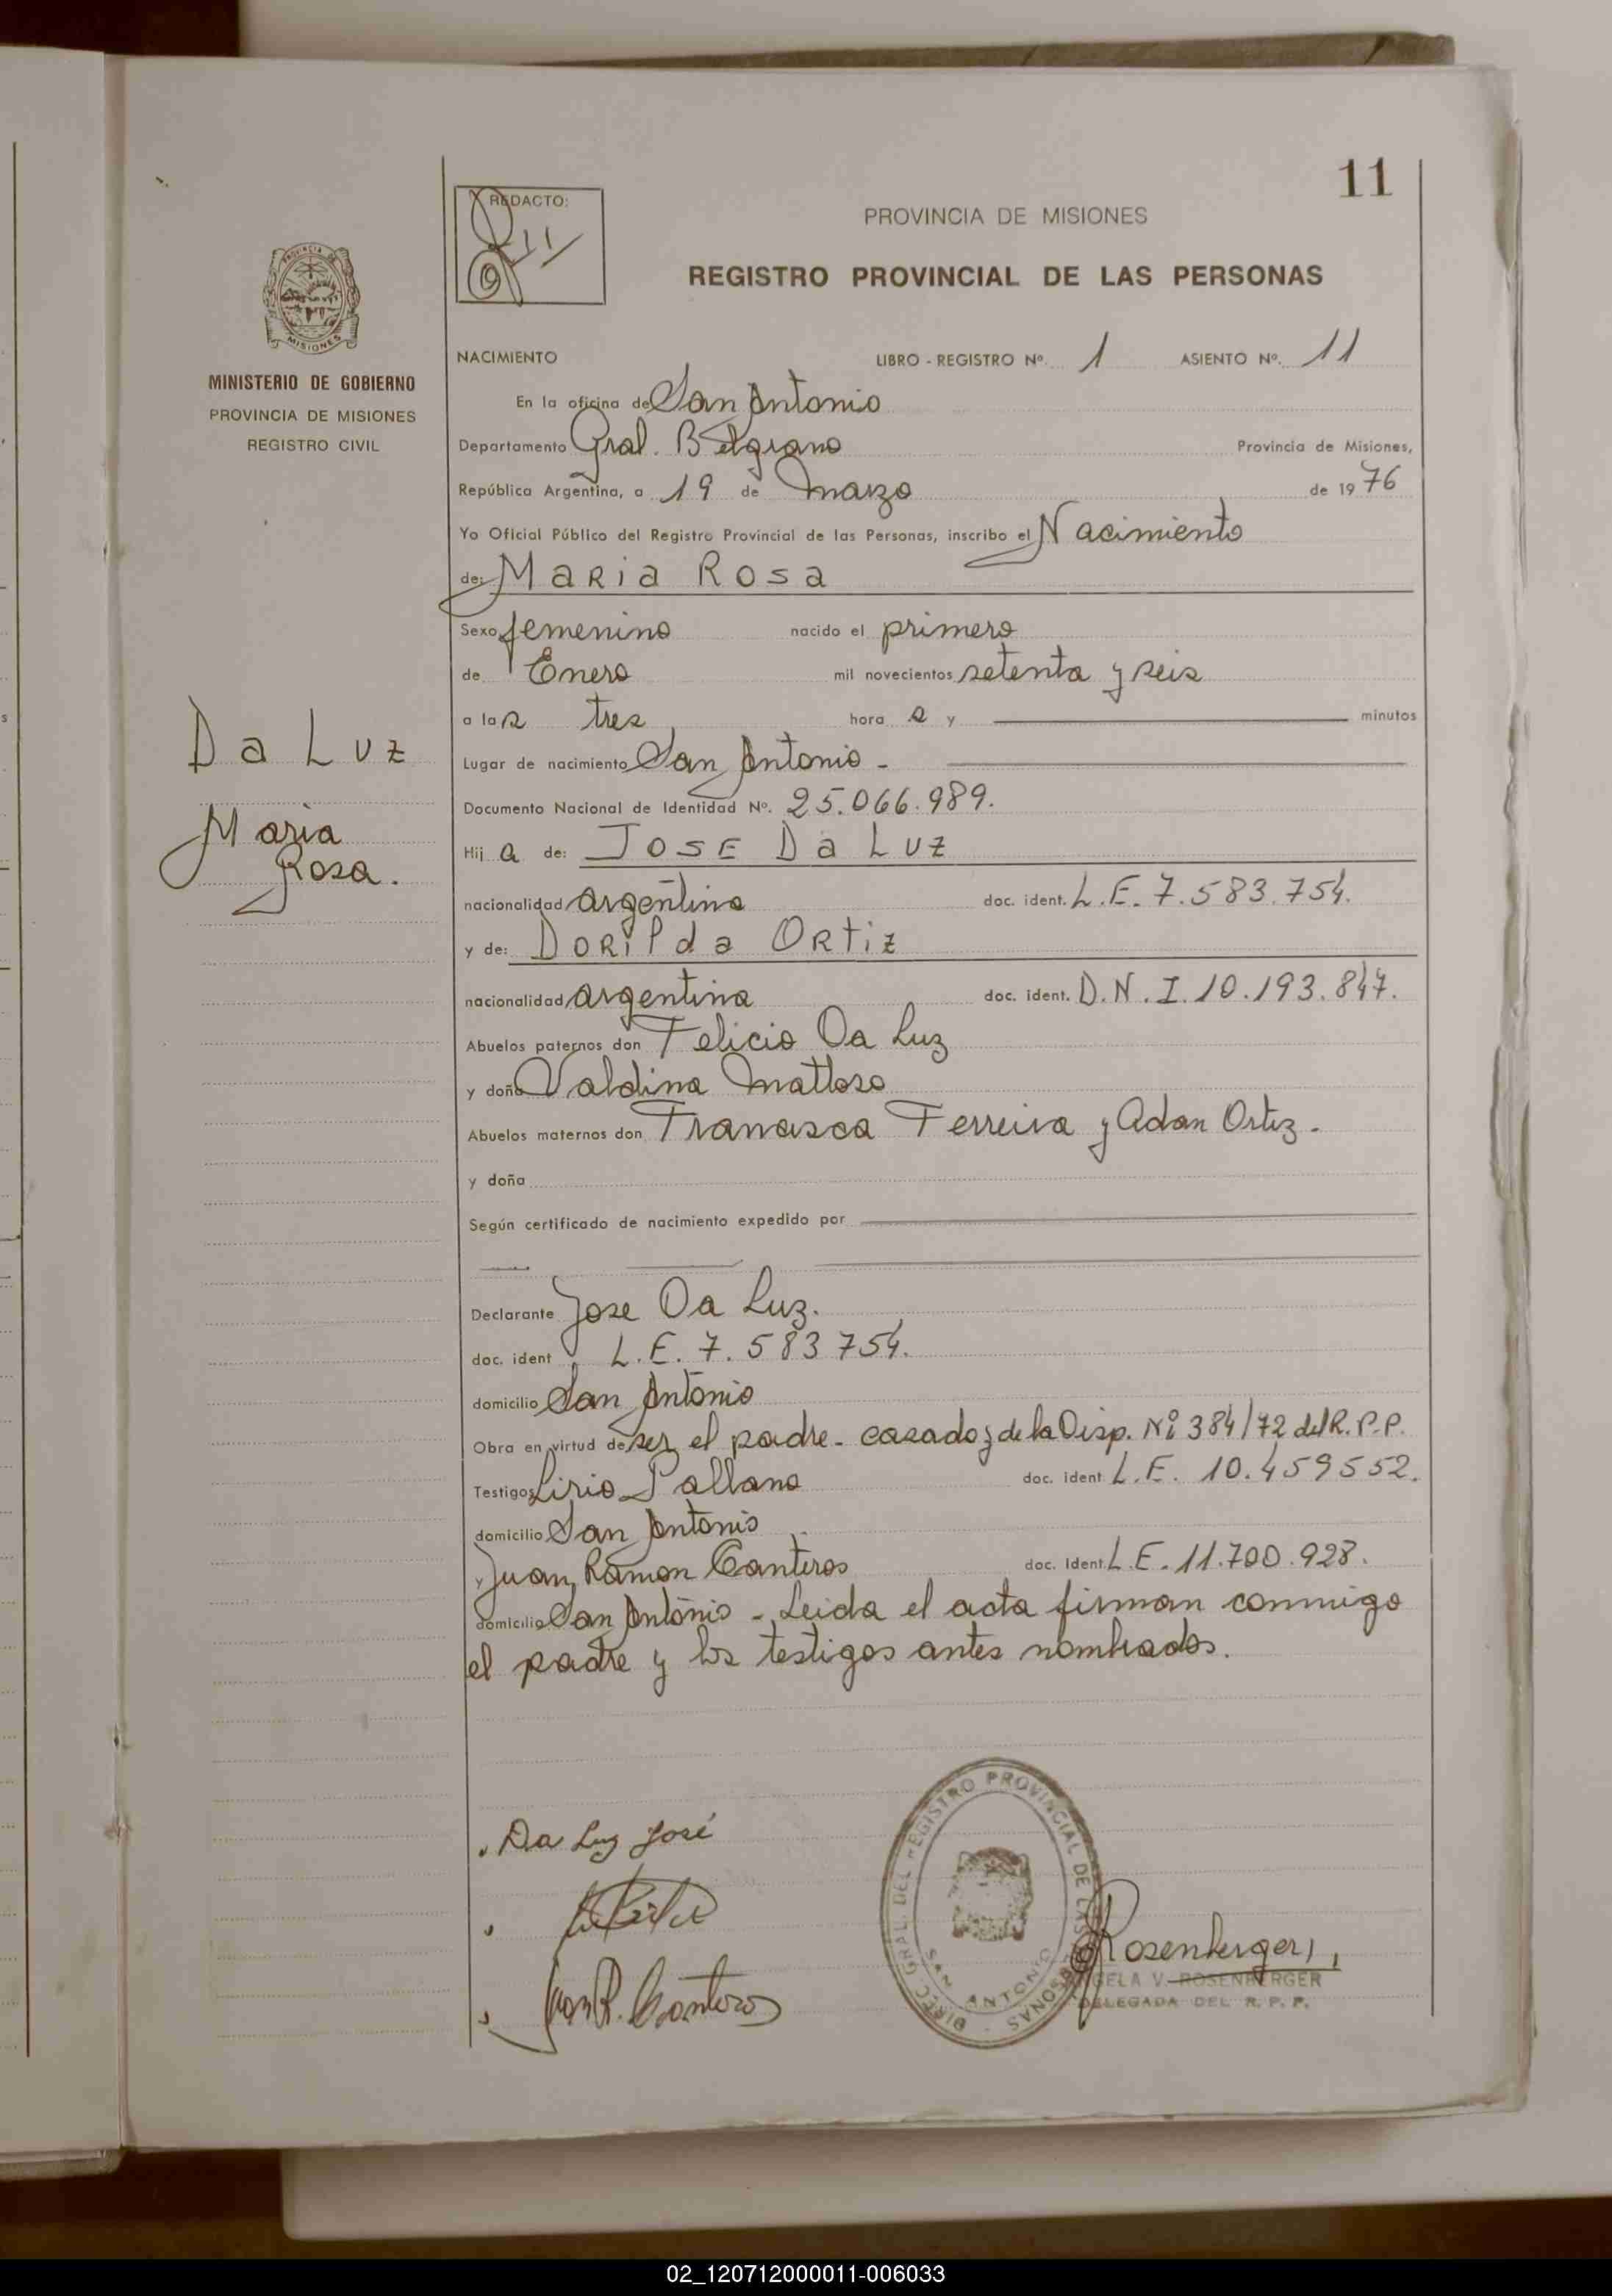 11
REDACTO:
11
PROVINCIA DE MISIONES
REGISTRO PROVINCIAL DE LAS PERSONAS
PROVINCIA DE
MISIONES
MINISTERIO DE GOBIERNO
PROVINCIA DE MISIONES
REGISTRO CIVIL
Da Luz
Maria
Rosa.
NACIMIENTO LIBRO - REGISTRO Nº. 1 ASIENTO Nº. 11
En la oficina de San Antonio
Departamento Gral. Belgrano Provincia de Misiones,
República Argentina, a 19 de Marzo de 1976
Yo Oficial Público del Registro Provincial de las Personas, inscribo el Nacimiento
de: Maria Rosa
Sexo femenino nacido el primero
de Enero mil novecientos setenta y seis
a las tres hora s y minutos
Lugar de nacimiento San Antonio -
Documento Nacional de Identidad Nº. 25.066.989.
Hij a de: JOSE Da Luz
nacionalidad argentino doc. ident. L.E. 7.583.754.
y de: Dorilda Ortiz
nacionalidad argentina doc. ident. D.N.I. 10.193.847.
Abuelos paternos don Felicio Da Luz
y doña Valdina Mattoso
Abuelos maternos don Francisca Ferreira y Adan Ortiz.
y doña
Según certificado de nacimiento expedido por
Declarante Jose Da Luz.
doc. ident L.E. 7.583754.
domicilio San Antonio
Obra en virtud de ser el padre - casado y de la Disp. Nº 384/72 del R.P.P.
Testigos Lirio Pallano doc. ident L.E. 10.459552.
domicilio San Antonio
y Juan Ramon Canteros doc. Ident. L.E. 11.700.928.
domicilio San Antonio - Leida el acta firman conmigo
el padre y los testigos antes nombrados.
Da Luz José
Juan R. Canteros
DIREC. GRAL. DEL REGISTRO PROVINCIAL DE LAS PERSONAS -
SAN ANTONIO
Rosenberger
GELA V. ROSENBERGER
DELEGADA DEL R. P. P.
02_120712000011-006033